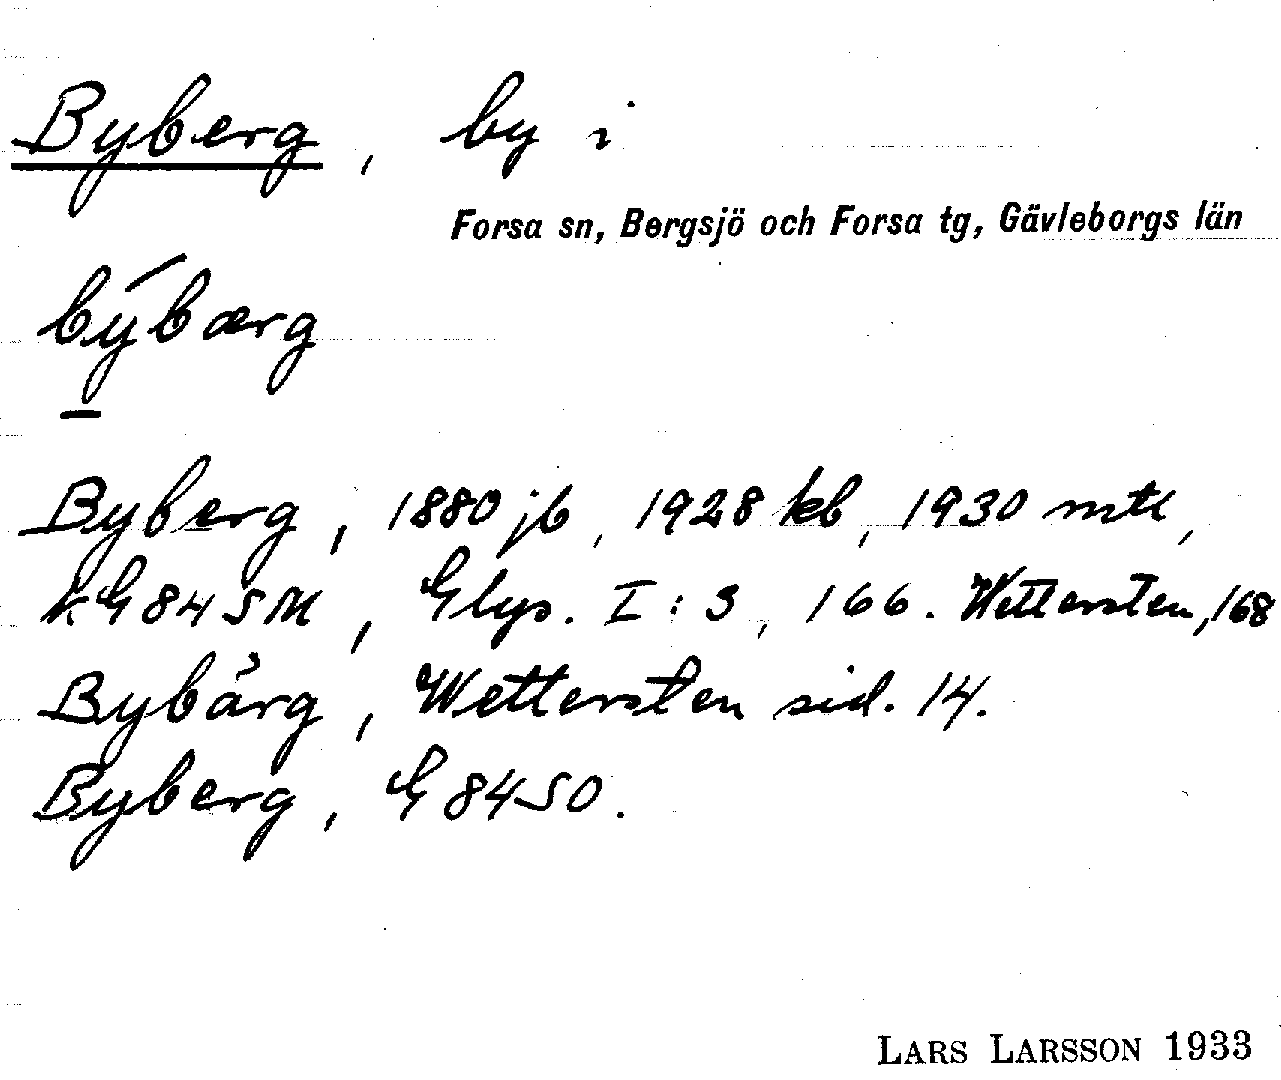 Byberg, by i
Forsa sn, Bergsjö och Forsa tg, Gävleborgs län
býbærg
Byberg, 1880 jb, 1928 kb, 1930 mtl,
kG 84 SM, Glys. I:3, 166. Wettersten, 168
Bybärg, Wettersten sid. 14.
Byberg, G 84 SO.
LARS LARSSON 1933